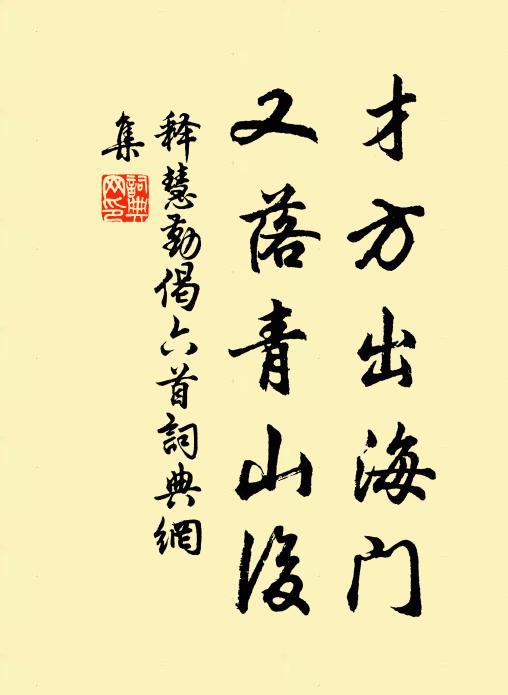 才方出海门
又落青山後
释慧勤偈六首詞典網
集
詞典
网印